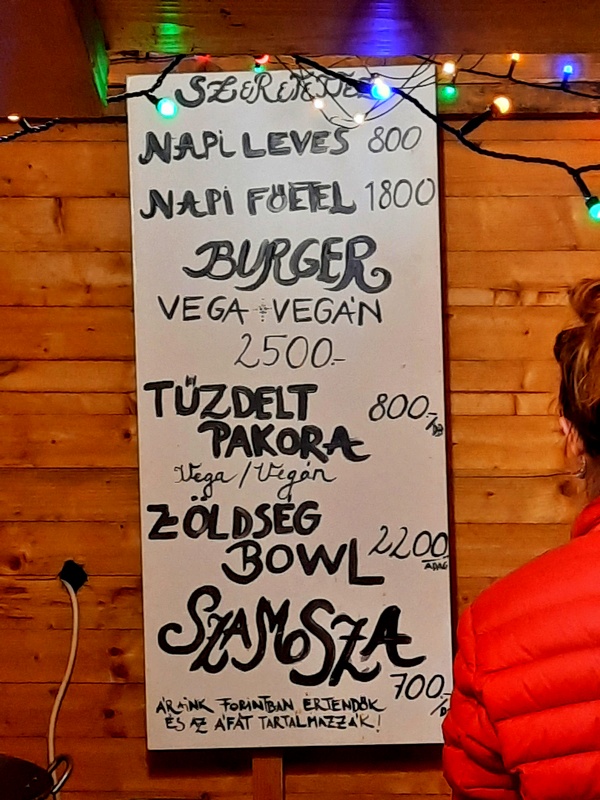 NAPI LEVES 800
NAPI FŐÉTEL 1800
BURGER
VEGA VEGÁN
2500.-
TŰZDELT
PAKORA 800.-/DB
Vega / Vegán
ZÖLDSÉG
BOWL 2200
ADAG
SZAMOSZA
700.-
ÁRAINK FORINTBAN ÉRTENDŐK
ÉS AZ ÁFÁT TARTALMAZZÁK!